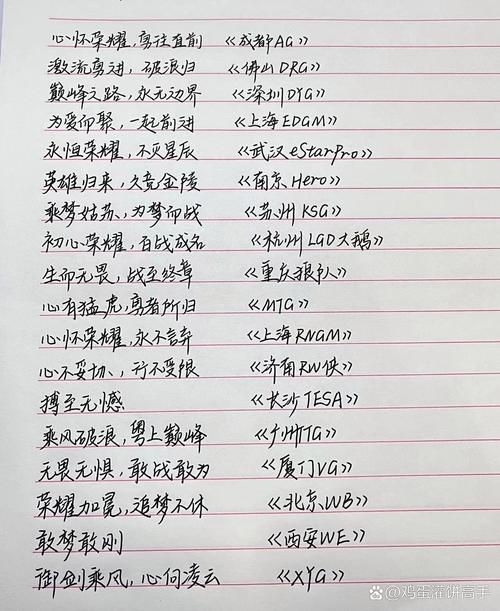 心怀荣耀,勇往直前 《成都AG》
激流勇进,破浪归 《佛山DRG》
巅峰之路,永无边界 《深圳DYG》
为爱而聚,一起前进 《上海EDGM》
永恒荣耀,不灭星辰 《武汉eStarPro》
英雄归来,久竞金陵 《南京Hero》
乘梦姑苏,为梦而战 《苏州KSG》
初心荣耀,百战成名 《杭州LGD大鹅》
生而无畏,战至终章 《重庆狼队》
心有猛虎,勇者所归 《MTG》
心怀荣耀,永不言弃 《上海RNGM》
心不妥切、,行不受限 《济南RW侠》
搏至无憾 《长沙TESA》
乘风破浪,粤上巅峰 《广州TTG》
无畏无惧,敢战敢为 《厦门VG》
荣耀加冕,追梦不休 《北京WB》
敢梦敢刚 《西安WE》
御剑乘风,心向凌云 《XYG》
@鸡蛋灌饼高手